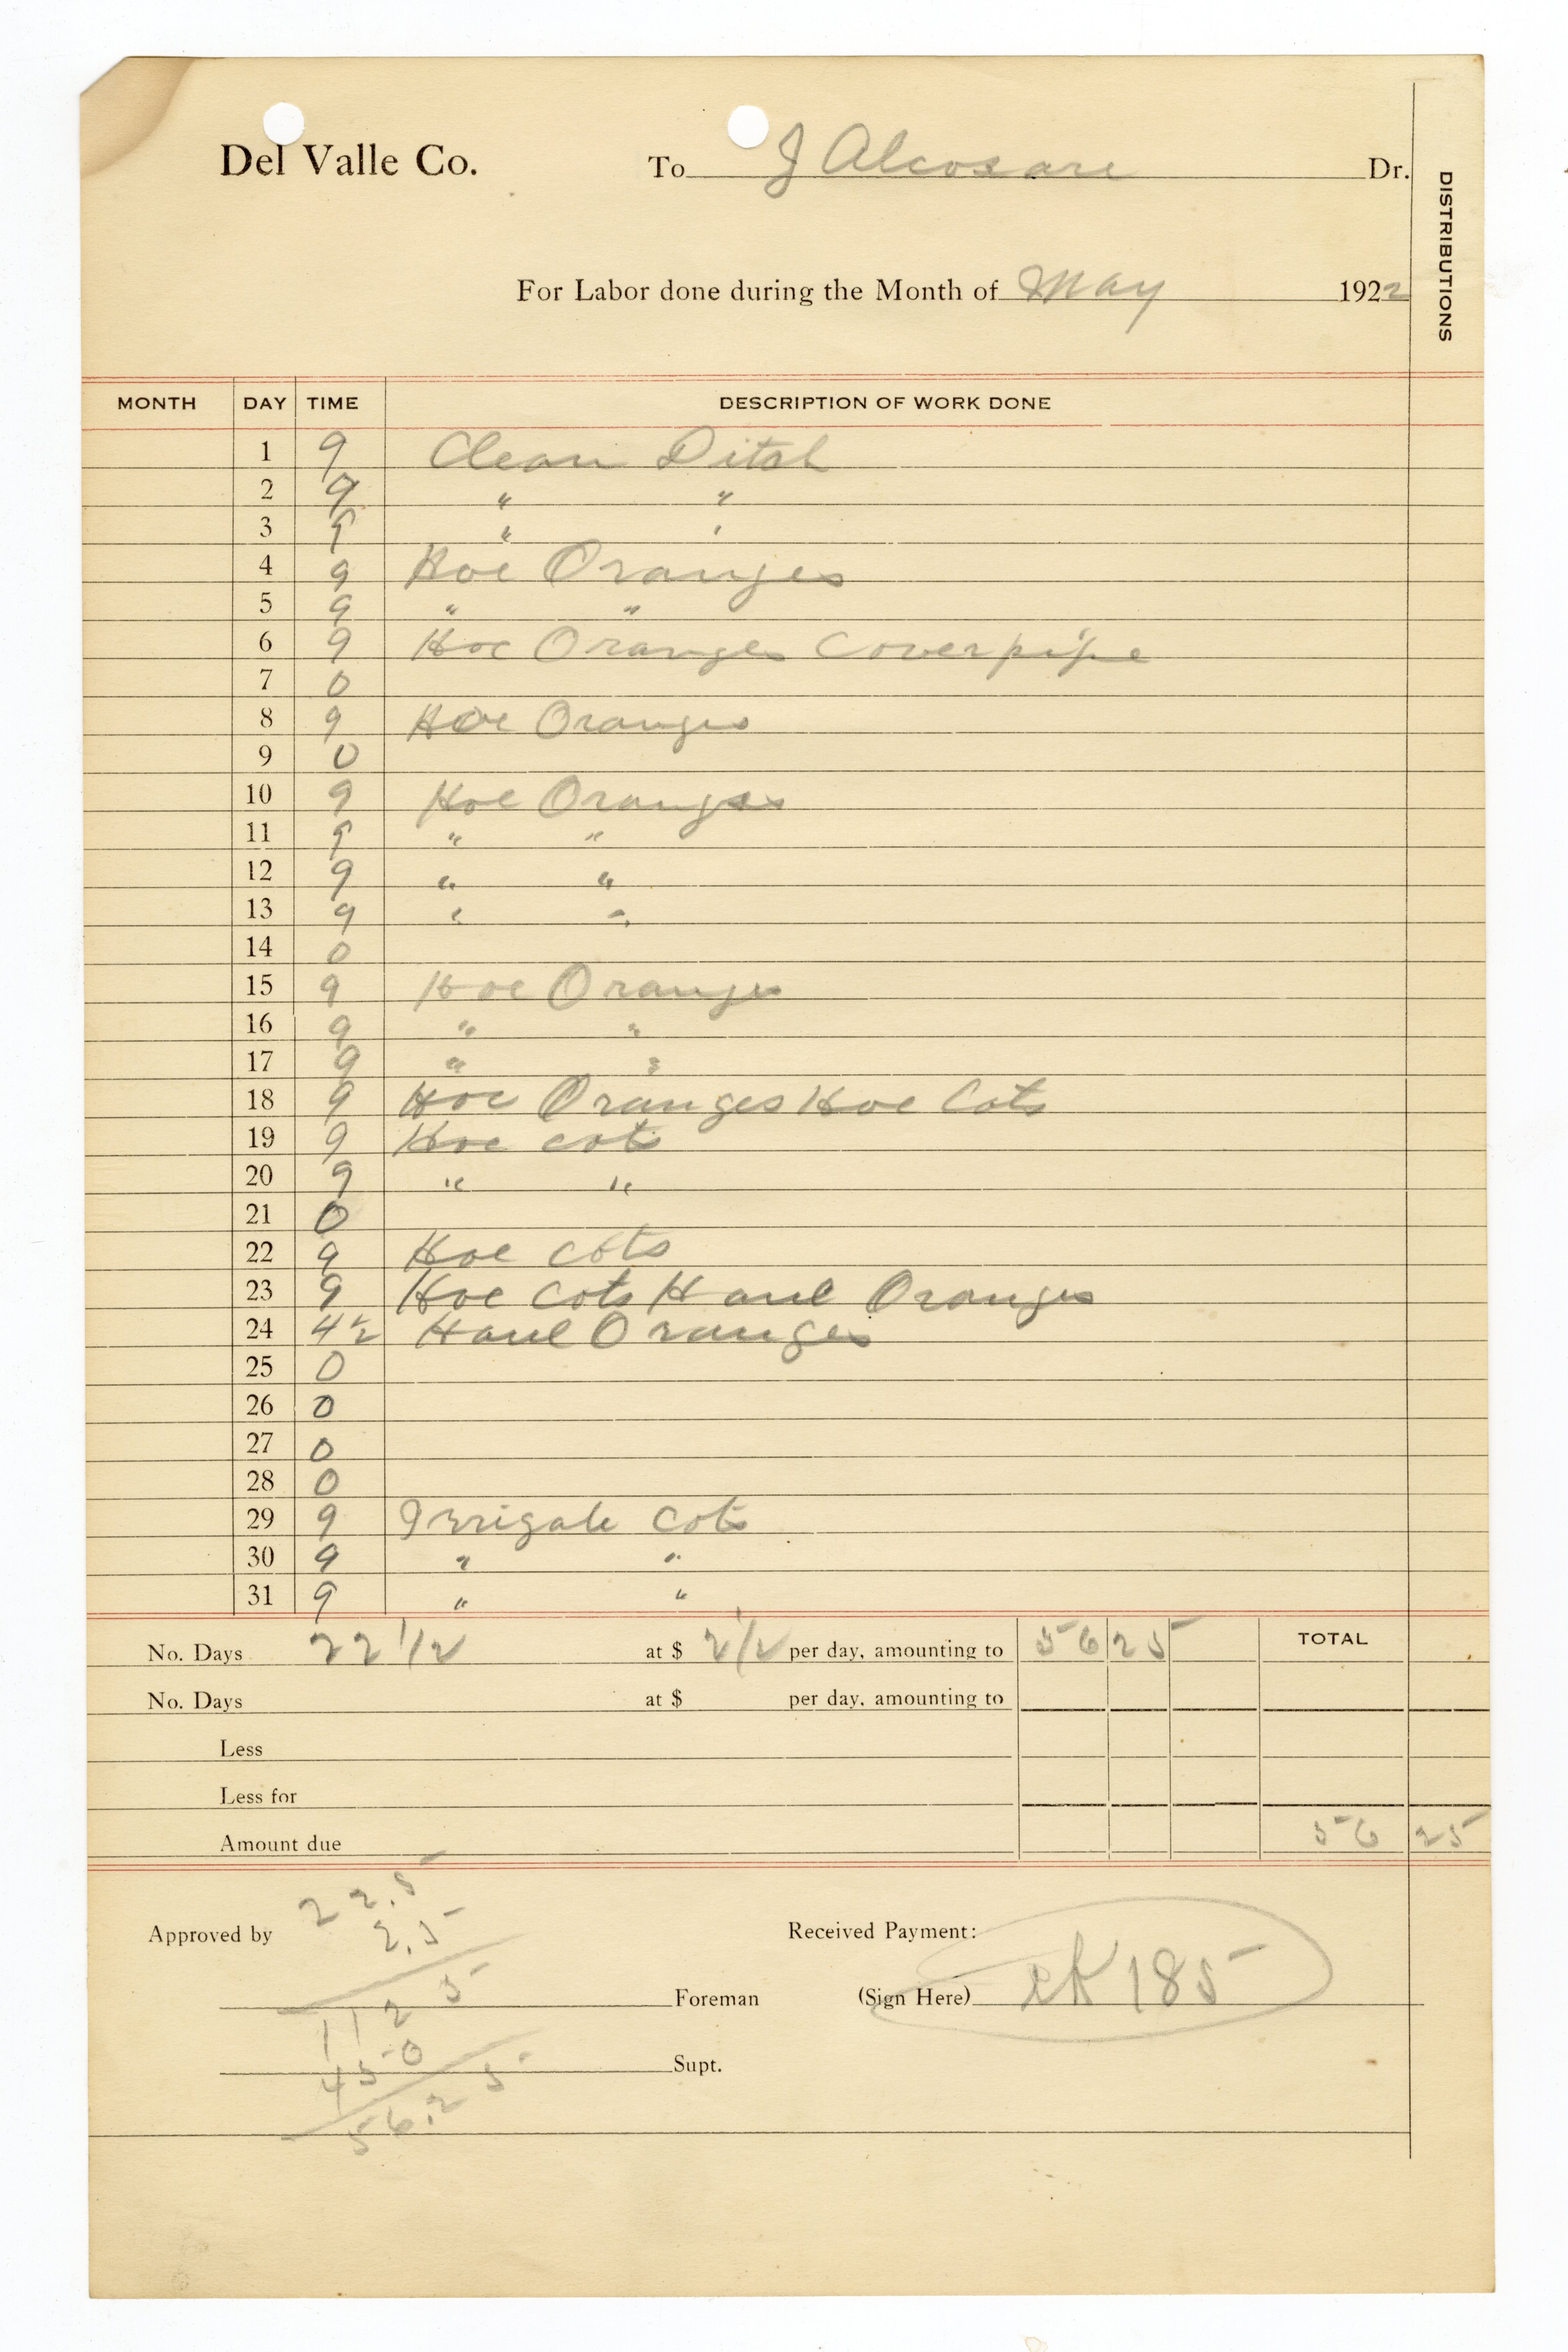 Del Valle Co. To J Alcosare Dr.
DISTRIBUTIONS
For Labor done during the Month of May 1922
MONTH DAY TIME DESCRIPTION OF WORK DONE
1 9 Clean Ditch
2 9 " "
3 9 " "
4 9 Hoe Oranges
5 9 " "
6 9 Hoe Oranges Cover pipe
7 0
8 9 Hoe Oranges
9 0
10 9 Hoe Oranges
11 9 " "
12 9 " "
13 9 " "
14 0
15 9 Hoe Oranges
16 9 " "
17 9 " "
18 9 Hoe Oranges Hoe Cots
19 9 Hoe cots
20 9 " "
21 0
22 9 Hoe cots
23 9 Hoe Cots Haul Oranges
24 4½ Haul Oranges
25 0
26 0
27 0
28 0
29 9 Irrigate Cots
30 9 " "
31 9 " "
No. Days 22 1/2 at $ 2 1/2 per day, amounting to 56 25 TOTAL
No. Days at $ per day, amounting to
Less
Less for
Amount due 56 25
22.5
Approved by 2.5 Received Payment:
112 5
Foreman (Sign Here) ck 185
45 0
Supt.
56.25